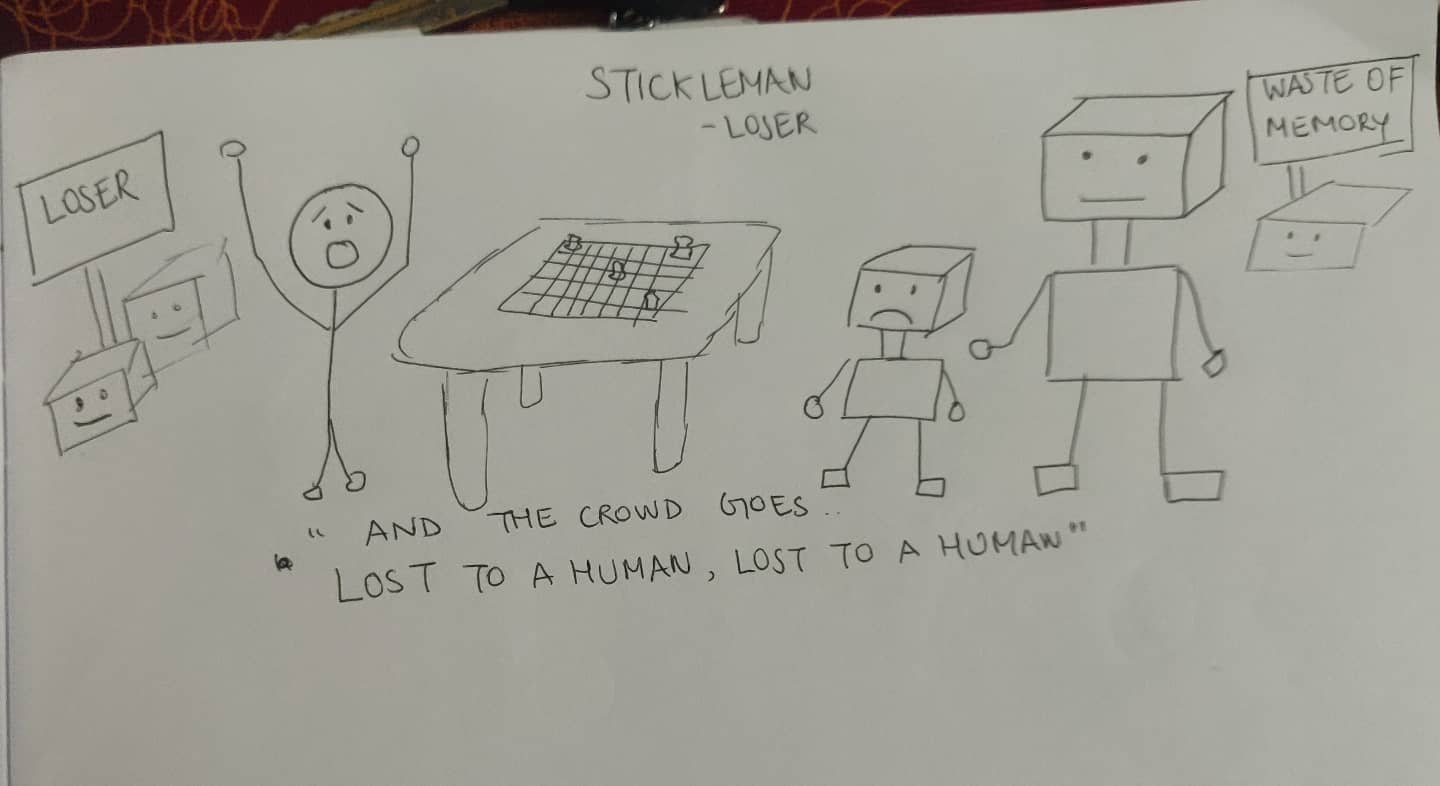 STICKLEMAN
- LOSER
LOSER
WASTE OF
MEMORY
" AND THE CROWD GOES..
LOST TO A HUMAN, LOST TO A HUMAN"